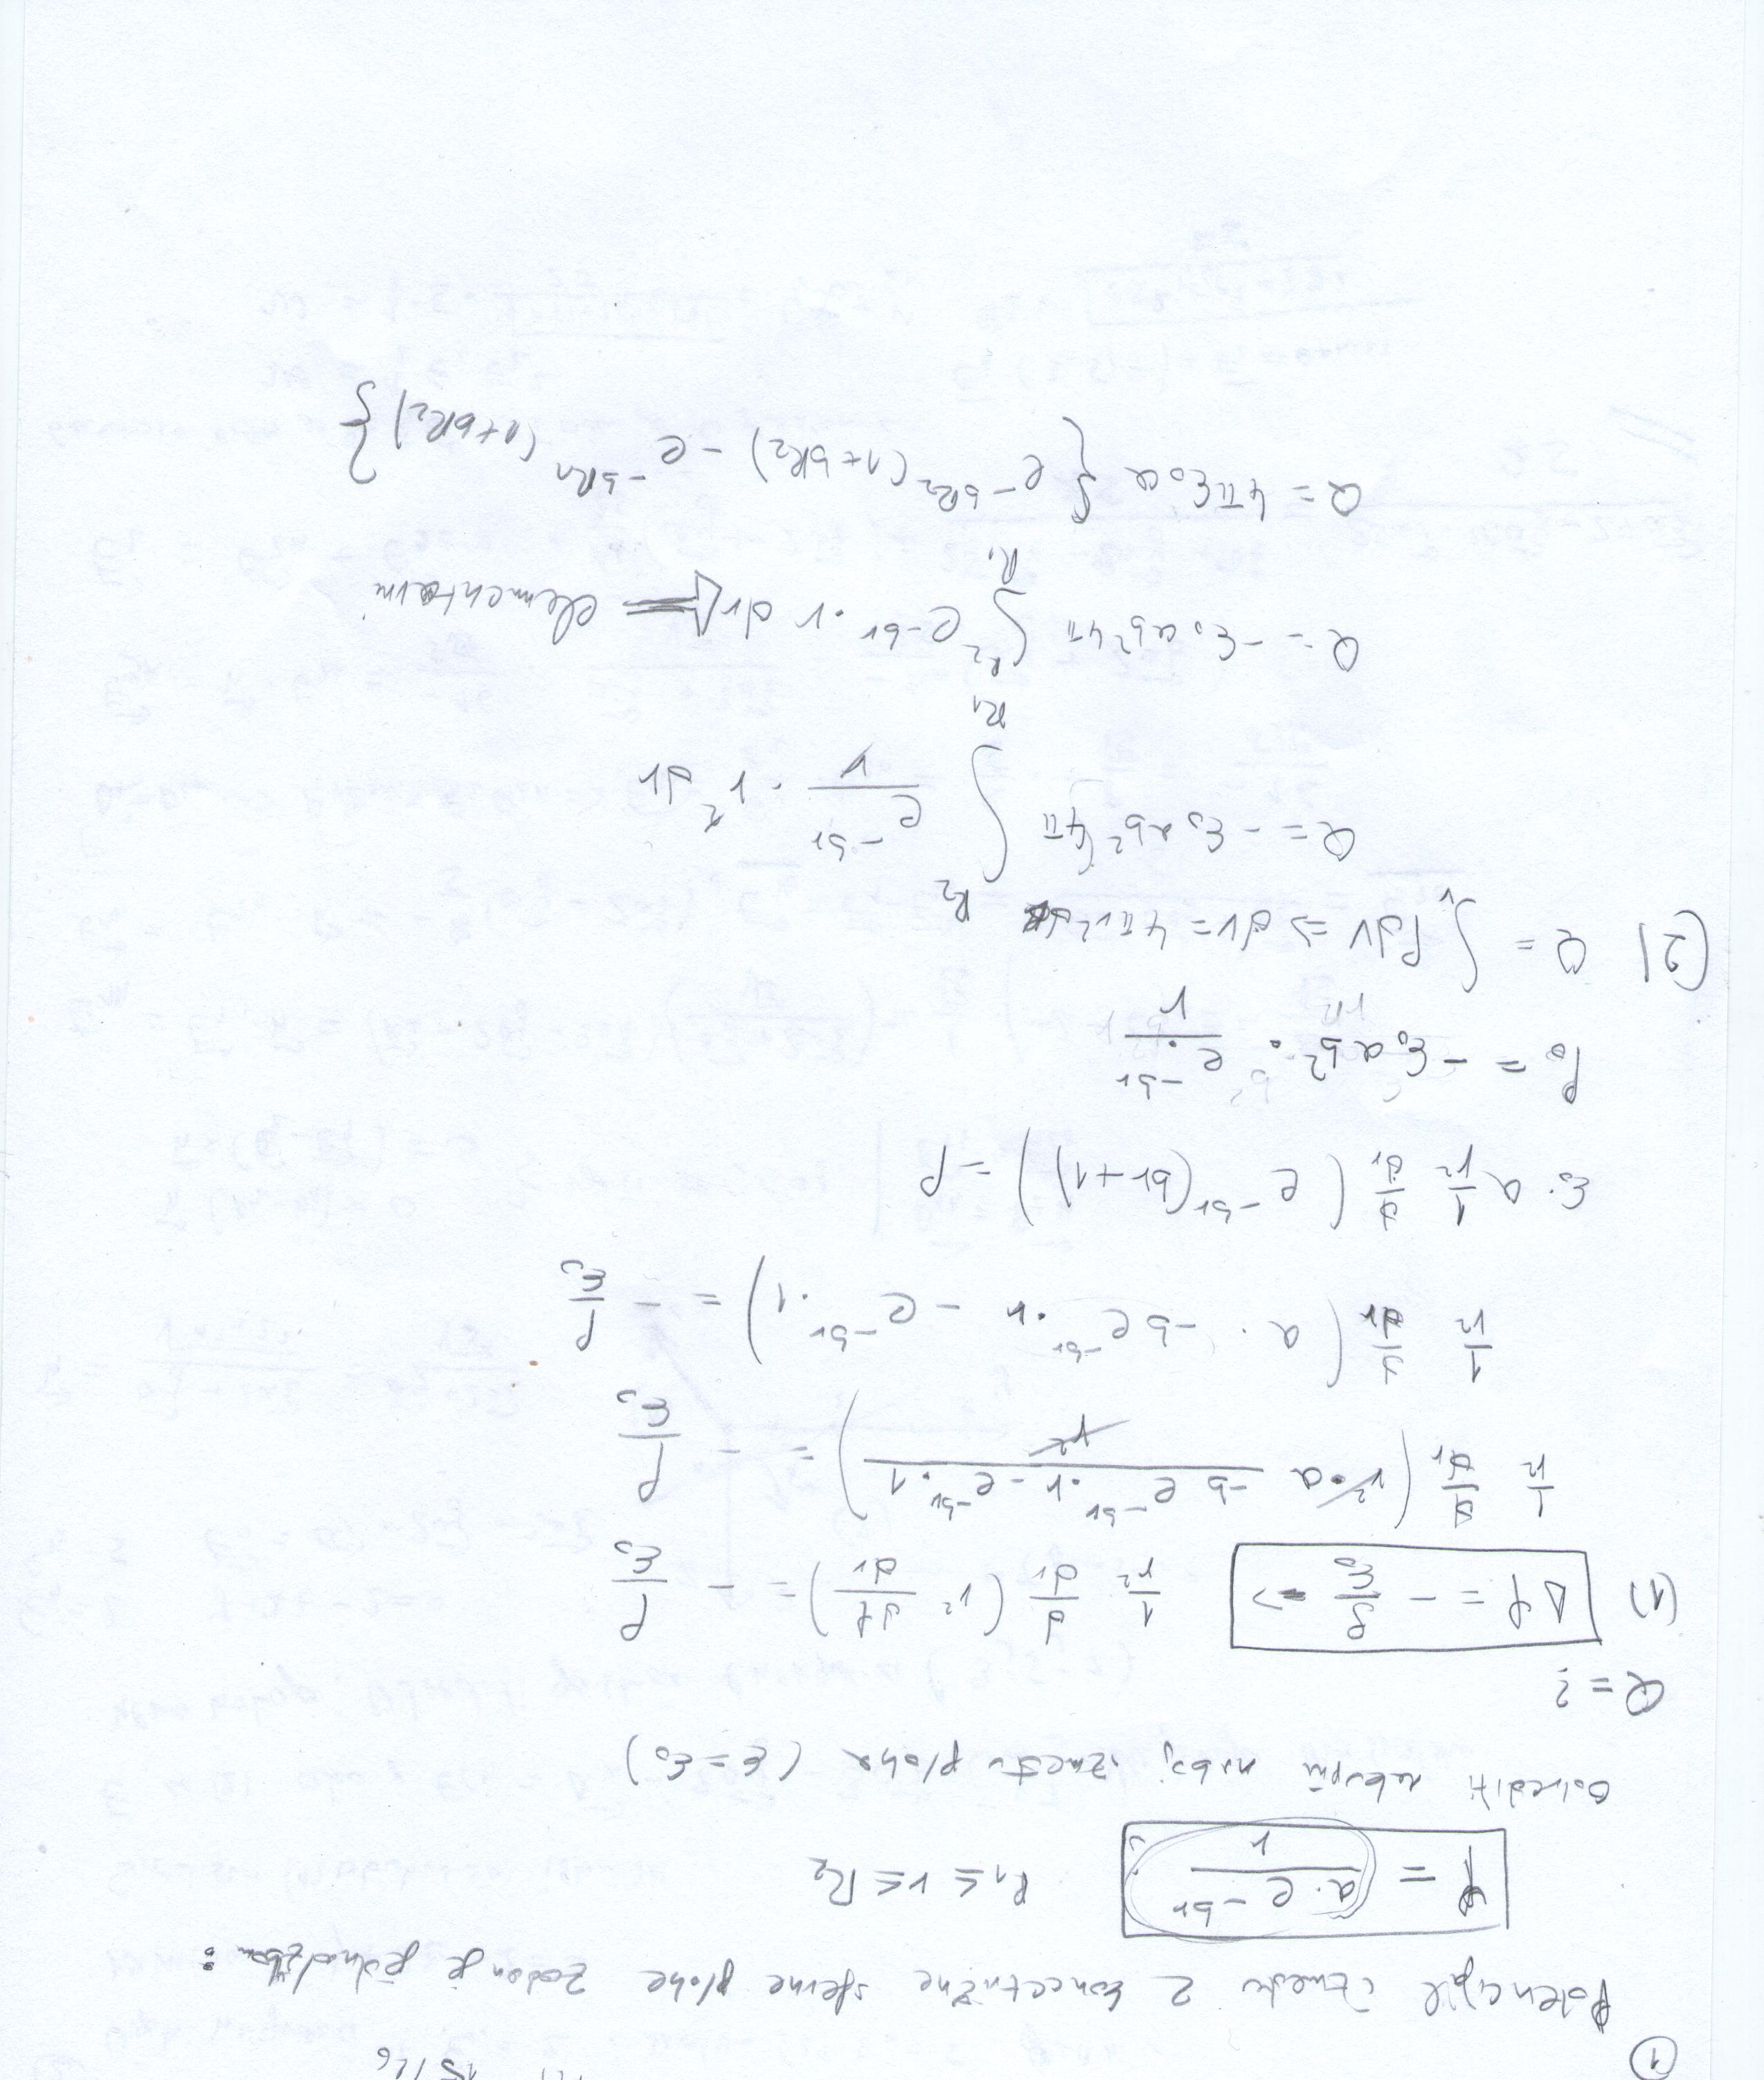 1
15/16
Potencijal između 2 koncetrične sferne plohe zadan je jednadžbom:
φ = a·e^{-br} / r   R₁ ≤ r ≤ R₂
Odrediti nakupni naboj između ploha (ε = ε₀)
Q = ?
(1) Δφ = - ρ/ε₀ =>   1/r² d/dr (r² dφ/dr) = - ρ/ε₀
1/r² d/dr (r²·a (-b e^{-br}·r - e^{-br}·1)/r²) = - ρ/ε₀
1/r² d/dr (a · -b e^{-br}·r - e^{-br}·1) = - ρ/ε₀
ε₀· a 1/r² d/dr (e^{-br}(br+1)) = ρ
ρ₀ = - ε₀ab² · e^{-br}/r
(2) Q = ∫_v ρdV => dV = 4πr²dr
Q = - ε₀ab² 4π ∫_{R₁}^{R₂} e^{-br}/r · r² dr
Q = - ε₀ab²4π ∫_{R₁}^{R₂} e^{-br}·r dr <= elementarni
Q = 4πε₀a { e^{-bR₂}(1+bR₂) - e^{-bR₁}(1+bR₂) }